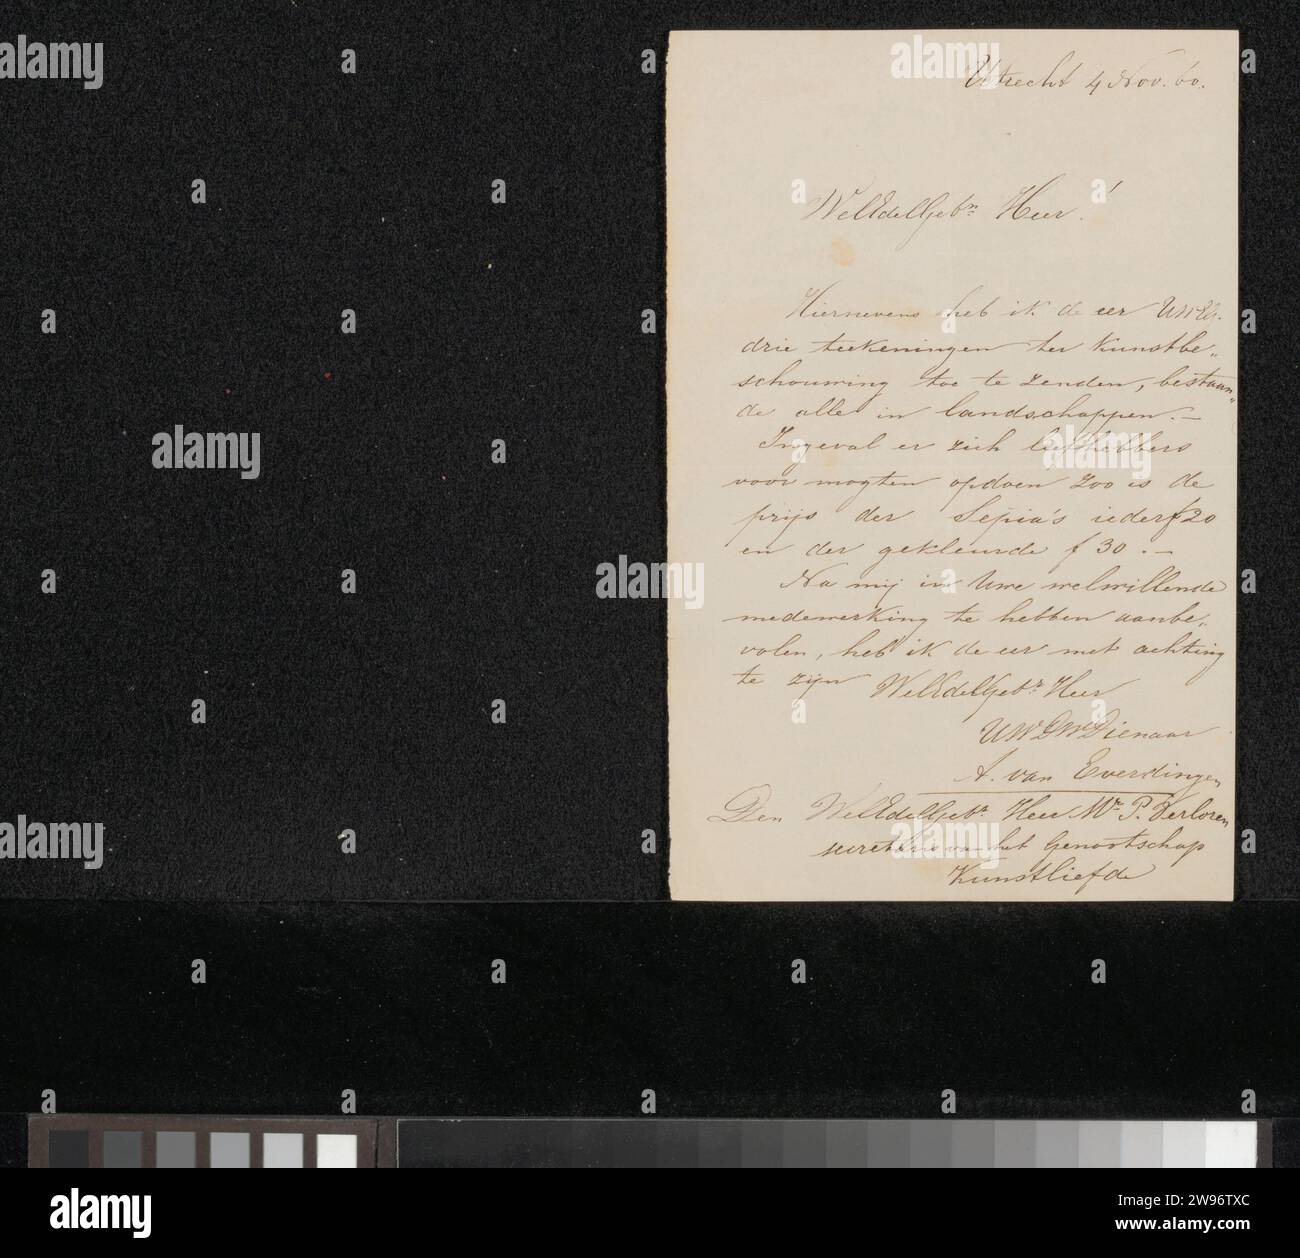 Utrecht 4 Nov. 60.
WelEdelGebn Heer!
Hiernevens heb ik de eer UWEg.
drie teekeningen ter Kunstbe„
schouwing toe te zenden, bestaan„
de alle in landschappen.—
Ingeval er zich liefhebbers
voor mogten opdoen zoo is de
prijs der Sepia's ieder f 20
en der gekleurde f 30.—
Na mij in Uwe welwillende
medewerking te hebben aanbe„
volen, heb ik de eer met achting
te zijn WelEdelGebr Heer
UWDWDienaar
A. van Everdingen
Den WelEdelGebr Heer Mr P. Verloren
secretaris van het Genootschap
Kunstliefde
alamy
alamy
alamy
alamy
alamy
alamy
alamy
a
alamy
Image ID: 2W96TXC
www.alamy.com